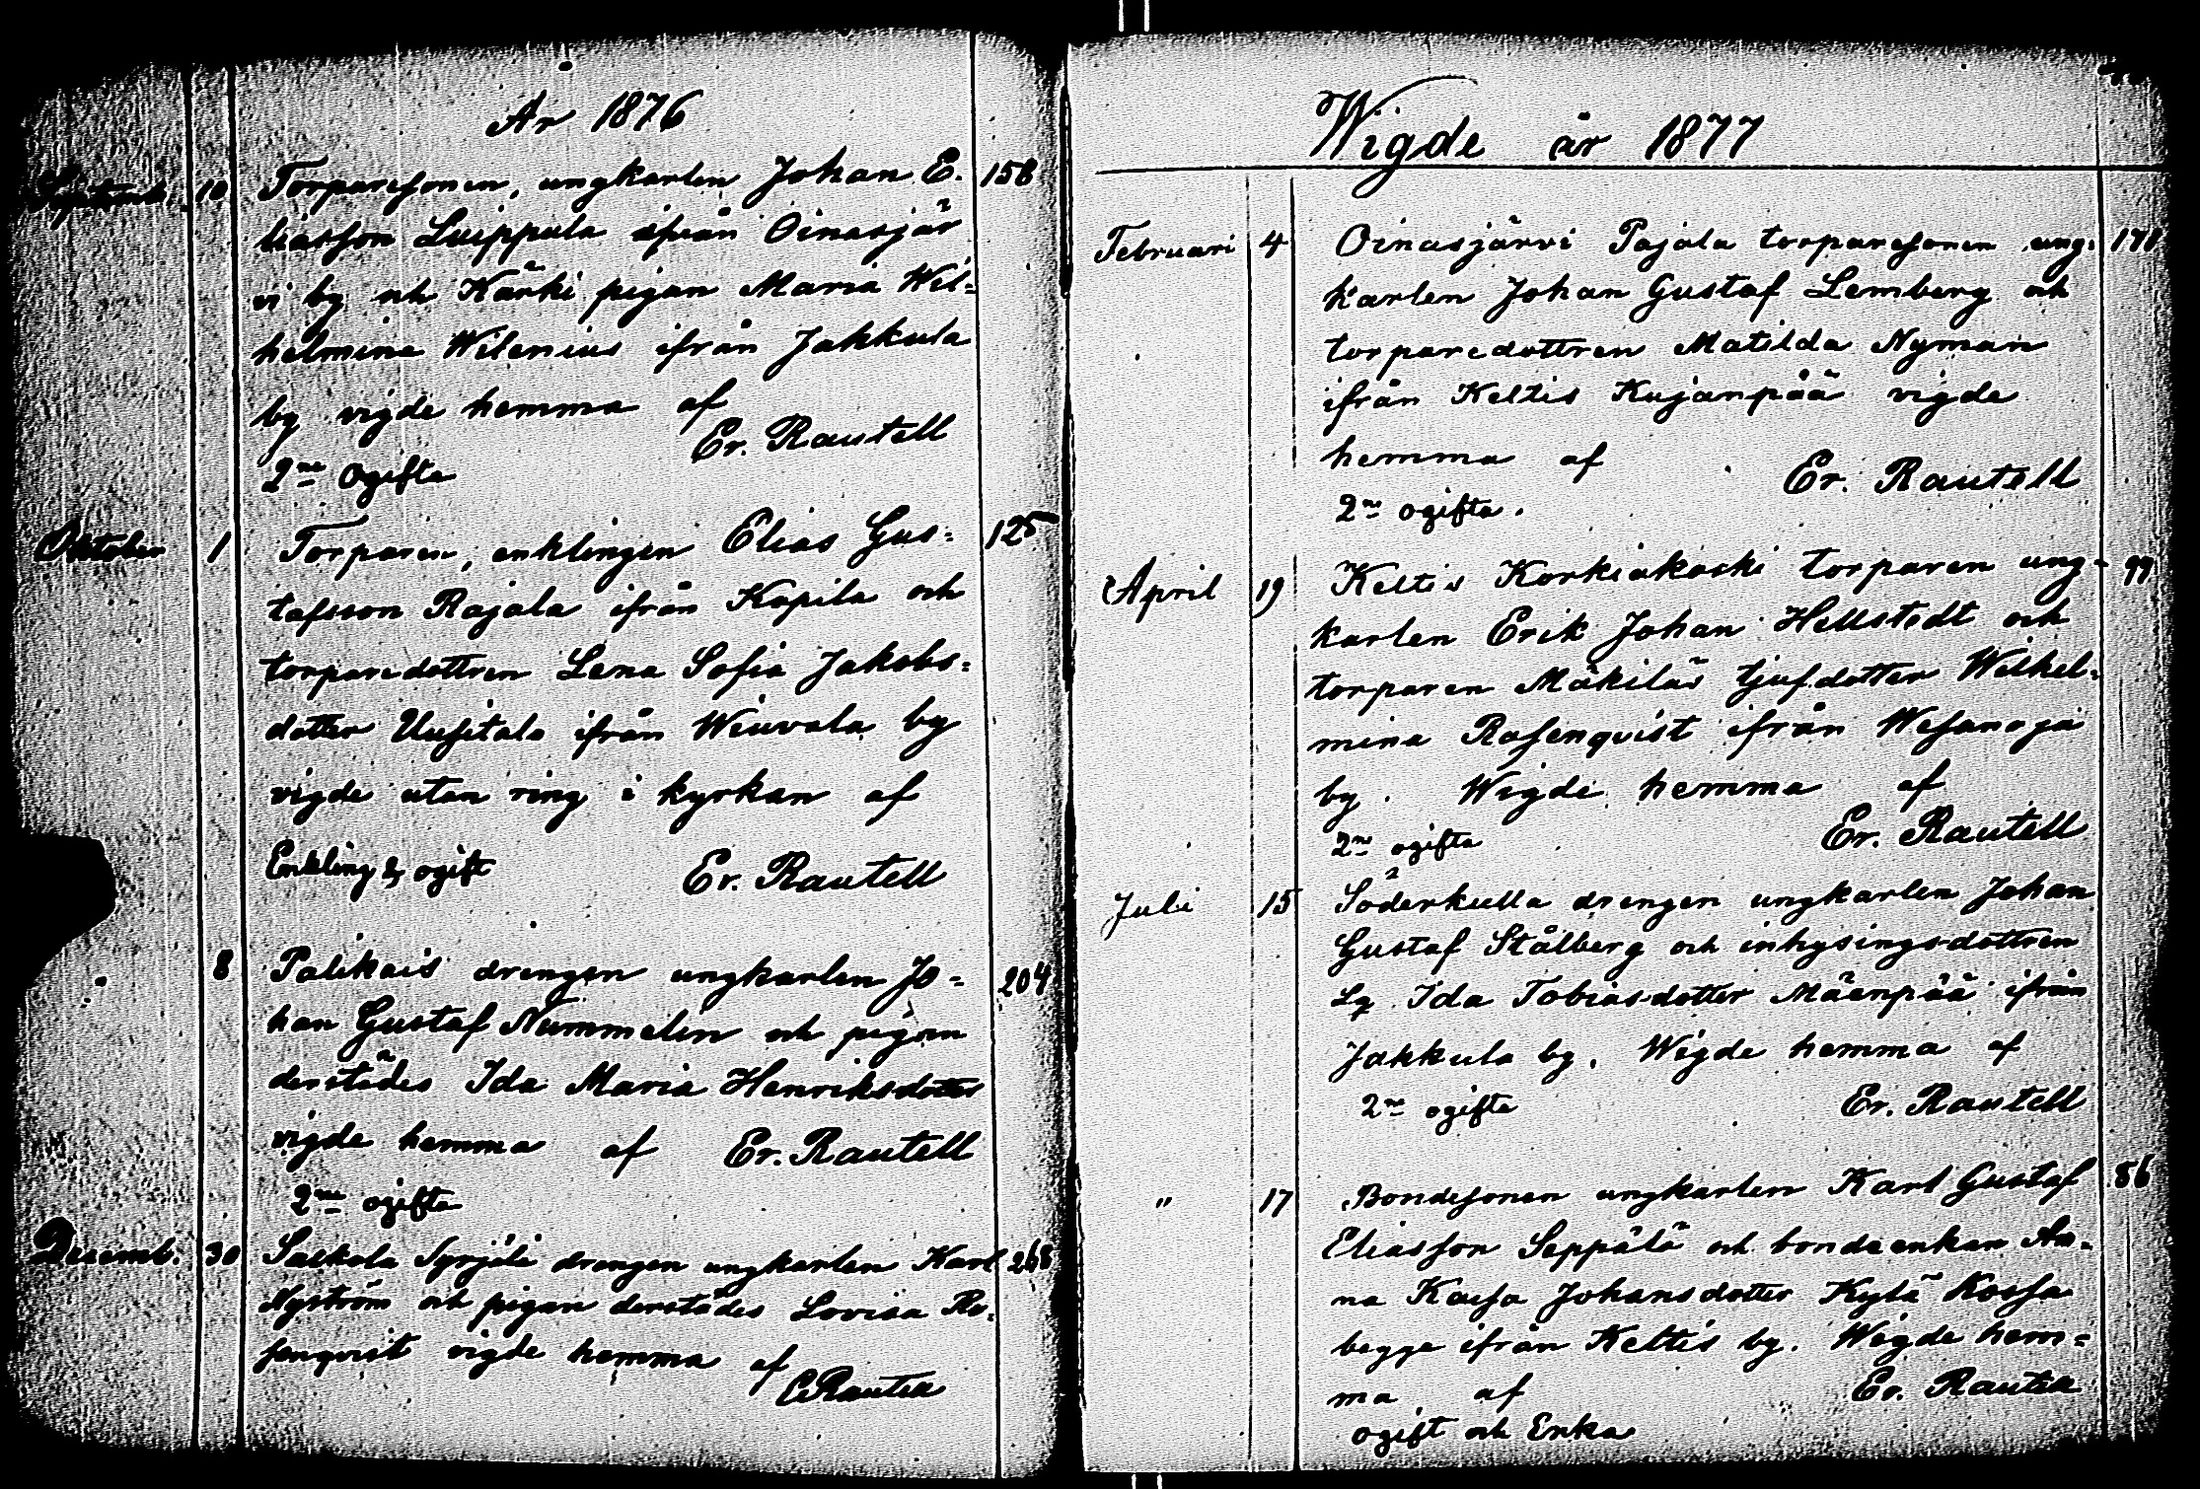 År 1876
Septemb. 10 Torparesonen, ungkarlen Johan E- 158
liasson Luippula ifrån Oinasjär
vi by och Kärki pigan Maria Wil=
helmina Wilenius ifrån Jakkula
by vigde hemma af
Er. Rautell
2ne Ogifta
Oktober 1 Torparen, enklingen Elias Gus= 125
tafsson Rajala ifrån Kapila och
torparedottren Lena Sofia Jakobs=
dotter Uusitalo ifrån Wiuvala by
vigde utan ring i kyrkan af
Enkling & ogift Er. Rautell
" 8 Palikais drengen ungkarlen Jo= 204
han Gustaf Nummelin och pigan
derstädes Ida Maria Henriksdotter
vigde hemma af Er. Rautell
2ne ogifta
Decemb. 30 Saikola Syrjäli drengen ungkarlen Karl 268
Nyström och pigan derstädes Lovisa Ro=
senqvist vigde hemma af
E. Rautell
Wigde år 1877
Februari 4 Oinasjärvi Pajala torparesonen ung- 171
karlen Johan Gustaf Lemberg och
torparedottren Matilda Nyman
ifrån Keltis Kujanpää vigde
hemma af Er. Rautell
2ne ogifta.
April 19 Keltis Korkiakoski torparen ung- 99
karlen Erik Johan Hellstedt och
torparen Mäkiläs tjufdotter Wilhel-
mina Rosenqvist ifrån Wesanoja
by. Wigde hemma af
2ne ogifta Er. Rautell
Juli 15 Söderkulla drengen ungkarlen Johan
Gustaf Stålberg och inhysingsdottren
Lq. Ida Tobiasdotter Mäenpää ifrån
Jakkula by. Wigde hemma af
2ne ogifta Er. Rautell
" 17 Bondesonen ungkarlen Karl Gustaf 86
Eliasson Seppälä och bondeenkan An-
na Kaisa Johansdotter Kylä Kossa
begge ifrån Keltis by. Wigde hem=
ma af Er. Rautell
ogift och Enka